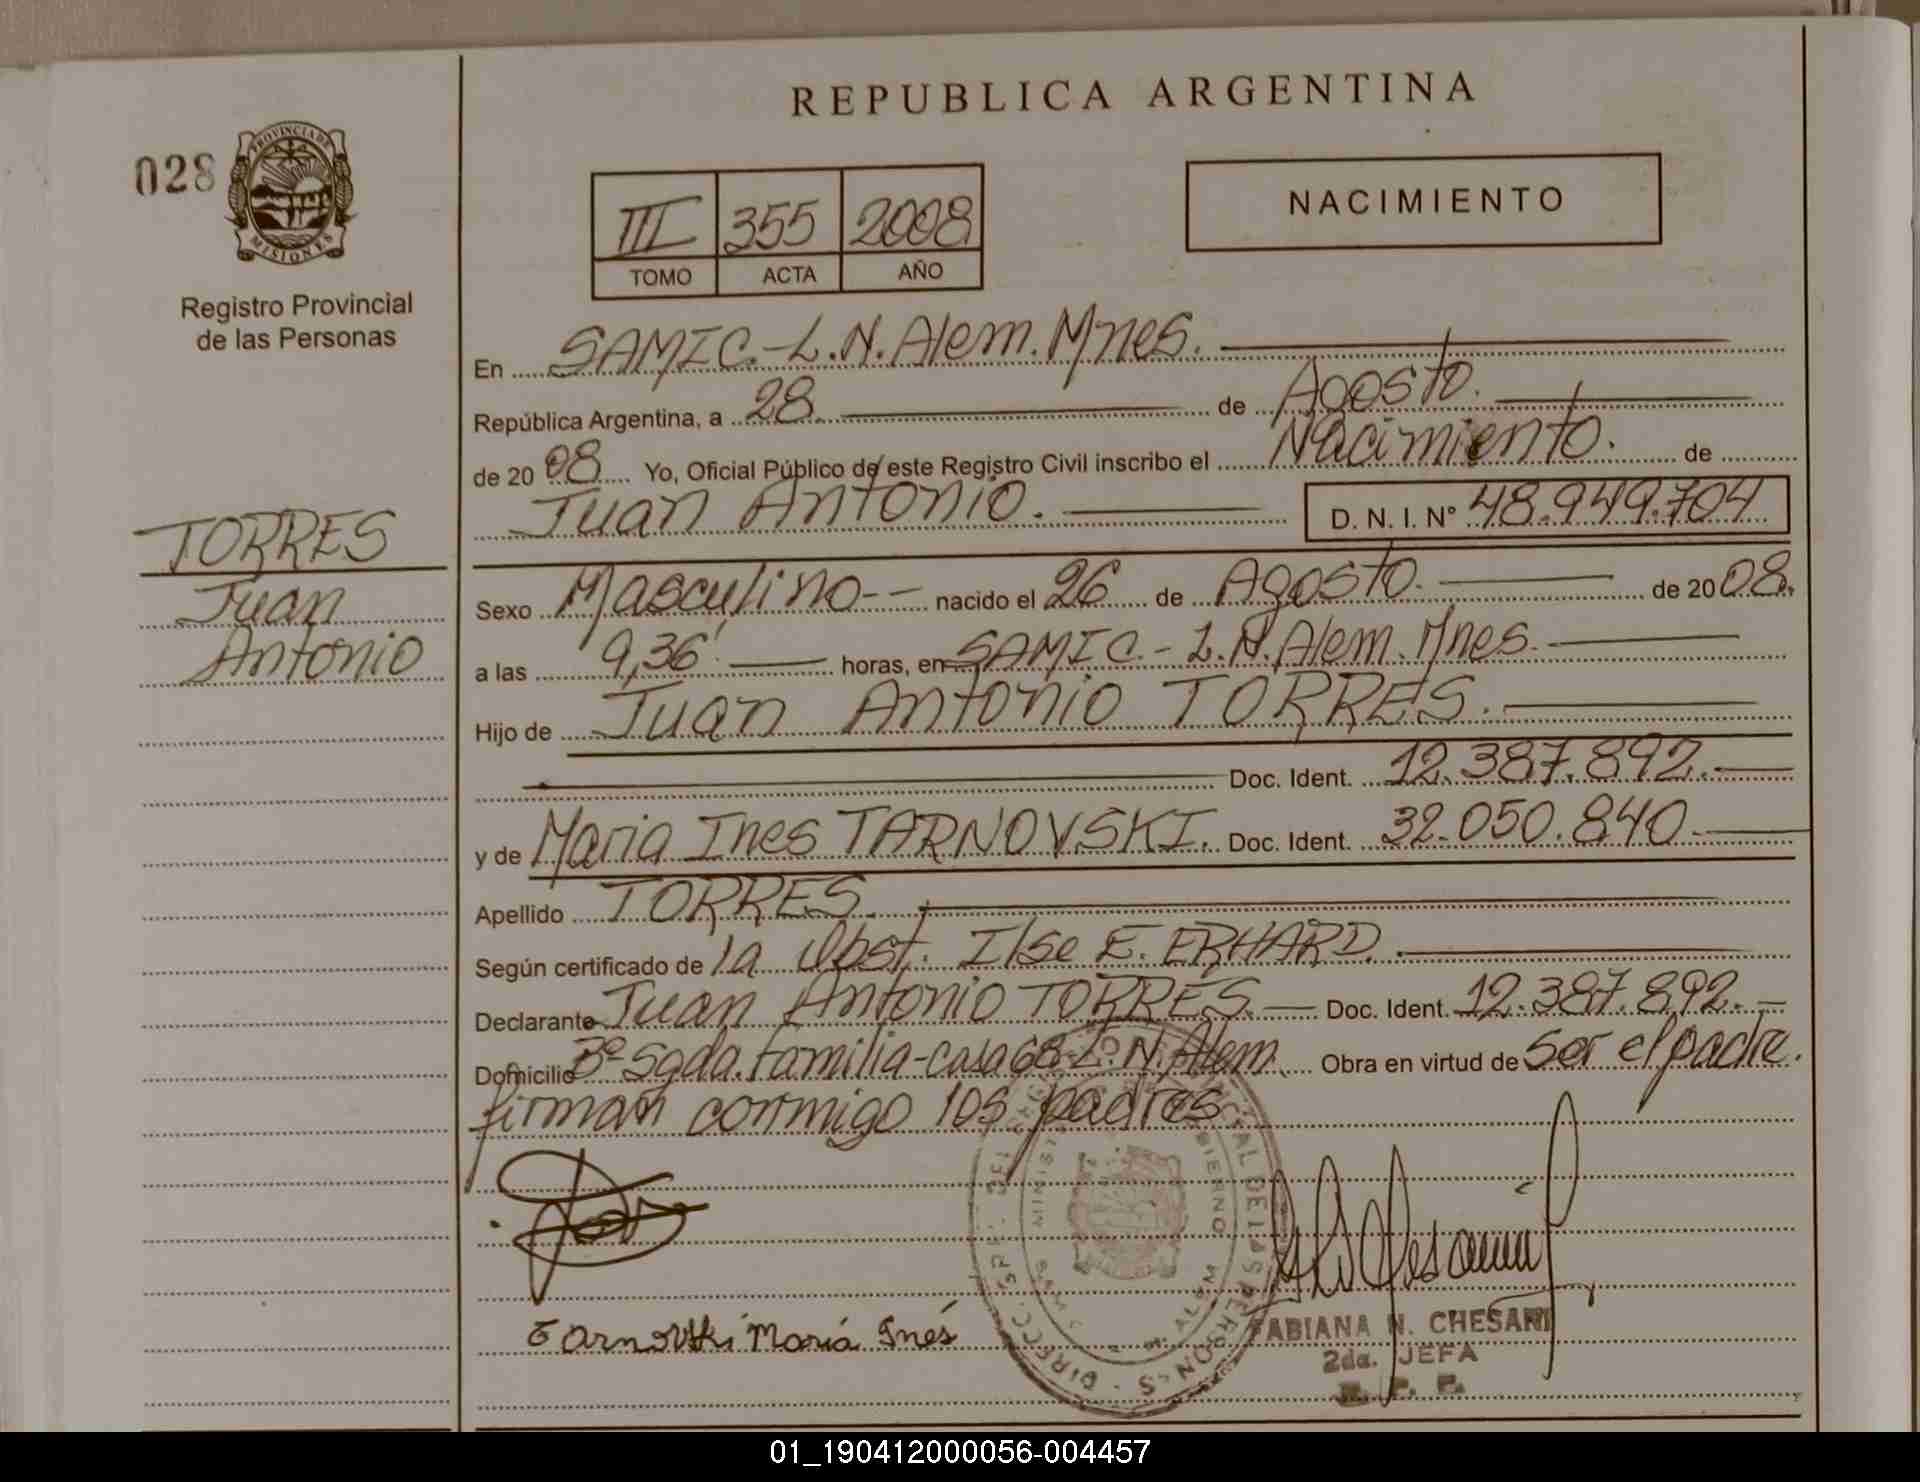 REPUBLICA ARGENTINA
028
PROVINCIA DE
MISIONES
Registro Provincial
de las Personas
III 355 2008
TOMO ACTA AÑO
NACIMIENTO
En SAMIC.-L.N.Alem.Mnes.
República Argentina, a 28. de Agosto.
de 20 08 Yo, Oficial Público de este Registro Civil inscribo el Nacimiento. de
Juan Antonio. D. N. I. N° 48.949.704
TORRES
Juan
Antonio
Sexo Masculino-- nacido el 26 de Agosto. de 20 08.
a las 9,36' horas, en SAMIC.-L.N.Alem.Mnes.
Hijo de Juan Antonio TORRES.
Doc. Ident. 12.387.892.
y de Maria Ines TARNOVSKI. Doc. Ident. 32.050.840
Apellido TORRES.
Según certificado de la Obst. Ilse E. ERHARD.
Declarante Juan Antonio TORRES. Doc. Ident. 12.387.892.
Domicilio Bº Sgda.Familia-casa 68-L.N.Alem. Obra en virtud de Ser el padre.
firman conmigo los padres
Tarnovski María Inés
FABIANA N. CHESANI
2da. JEFA
R. P. P.
01_190412000056-004457